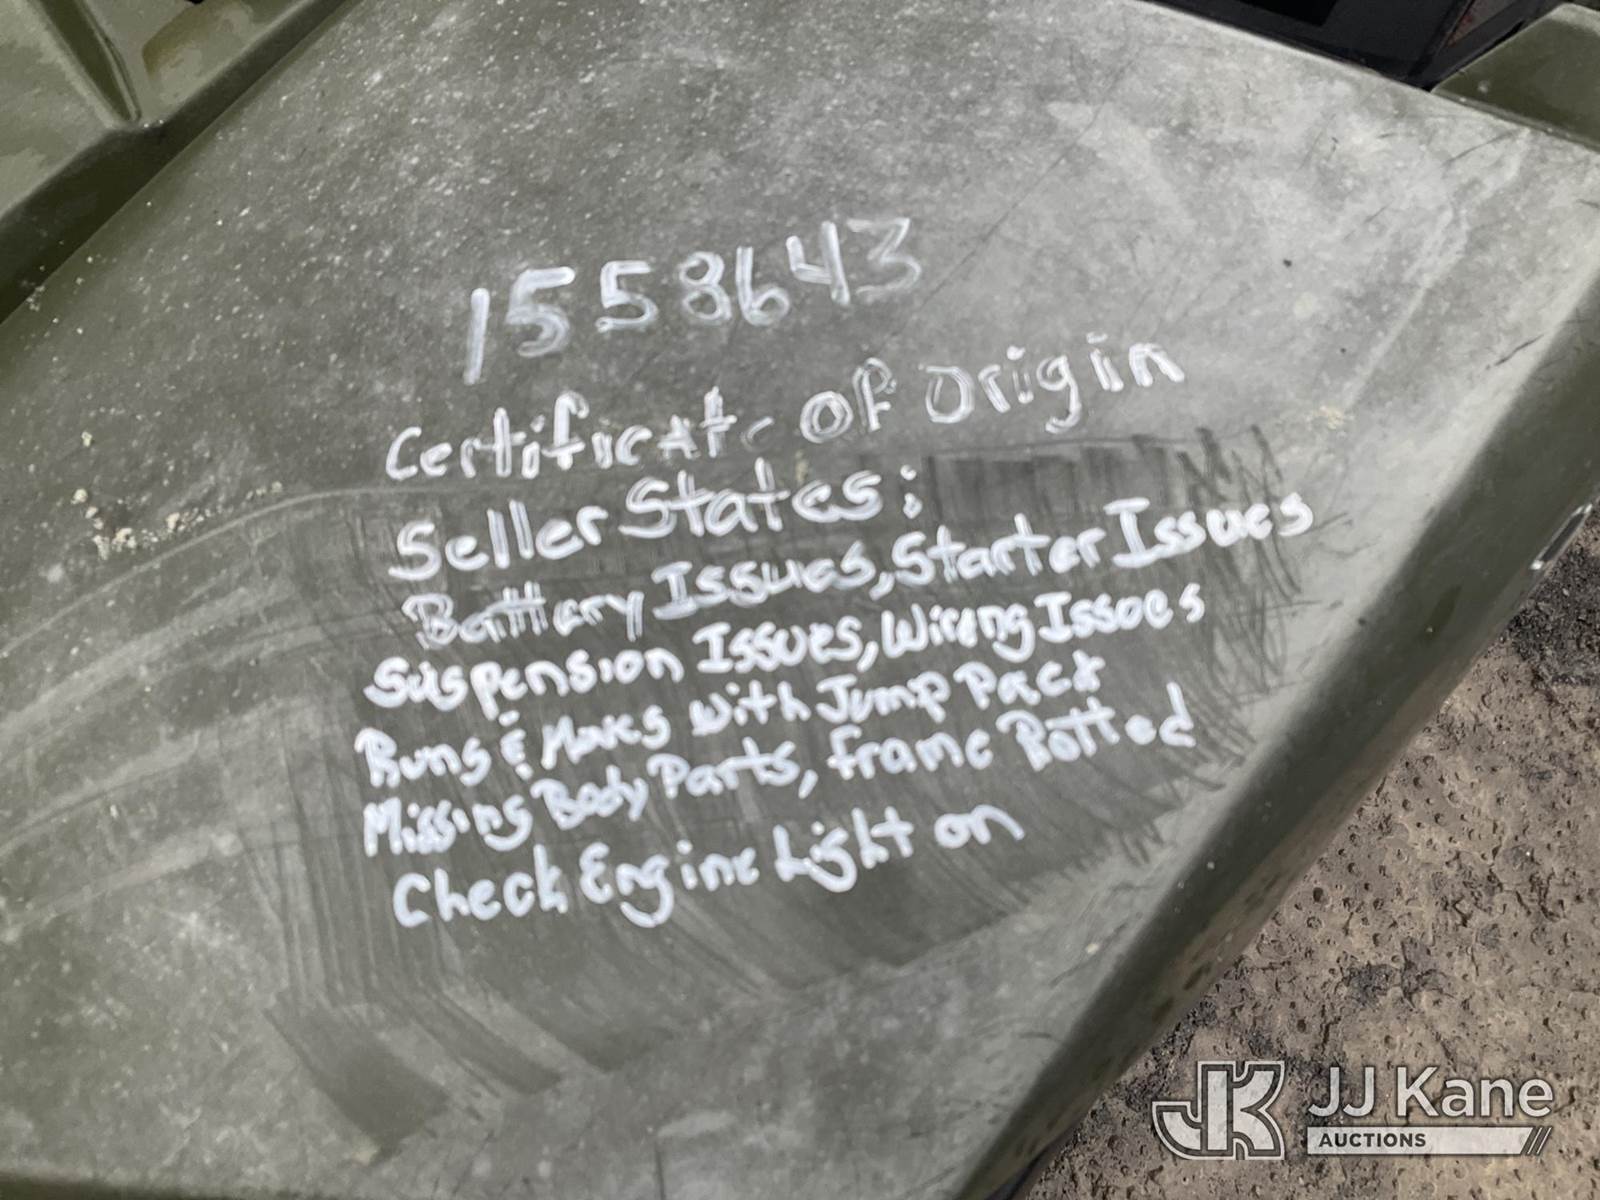 1558643
Certificate of Origin
Seller States:
Battery Issues, Starter Issues
Suspension Issues, Wiring Issues
Runs & Moves with Jump Pack
Missing Body Parts, Frame Rotted
Check Engine Light on
JK JJ Kane
AUCTIONS